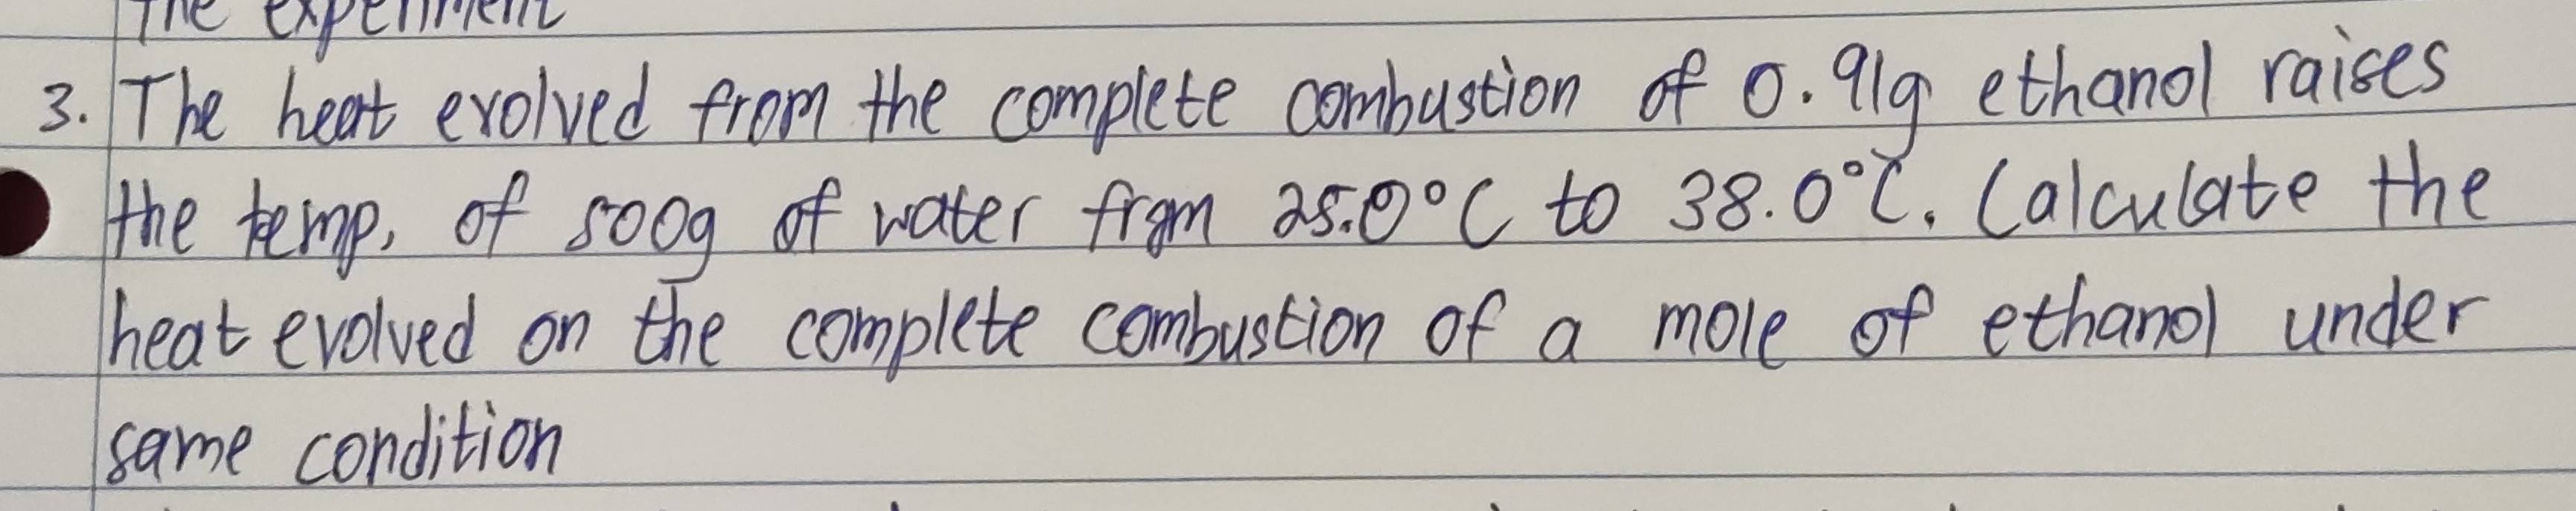 The experiment
3. The heat evolved from the complete combustion of 0.91g ethanol raises
the temp, of 500g of water from 25.0°C to 38.0°C. Calculate the
heat evolved on the complete combustion of a mole of ethanol under
same condition